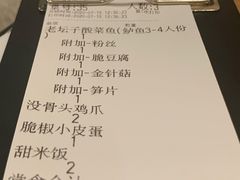 老坛子酸菜鱼(鲈鱼3-4人份
)
1
附加-粉丝
1
附加-脆豆腐
2
附加-金针菇
1
附加-笋片
1
没骨头鸡爪
2
脆椒小皮蛋
1
甜米饭
2